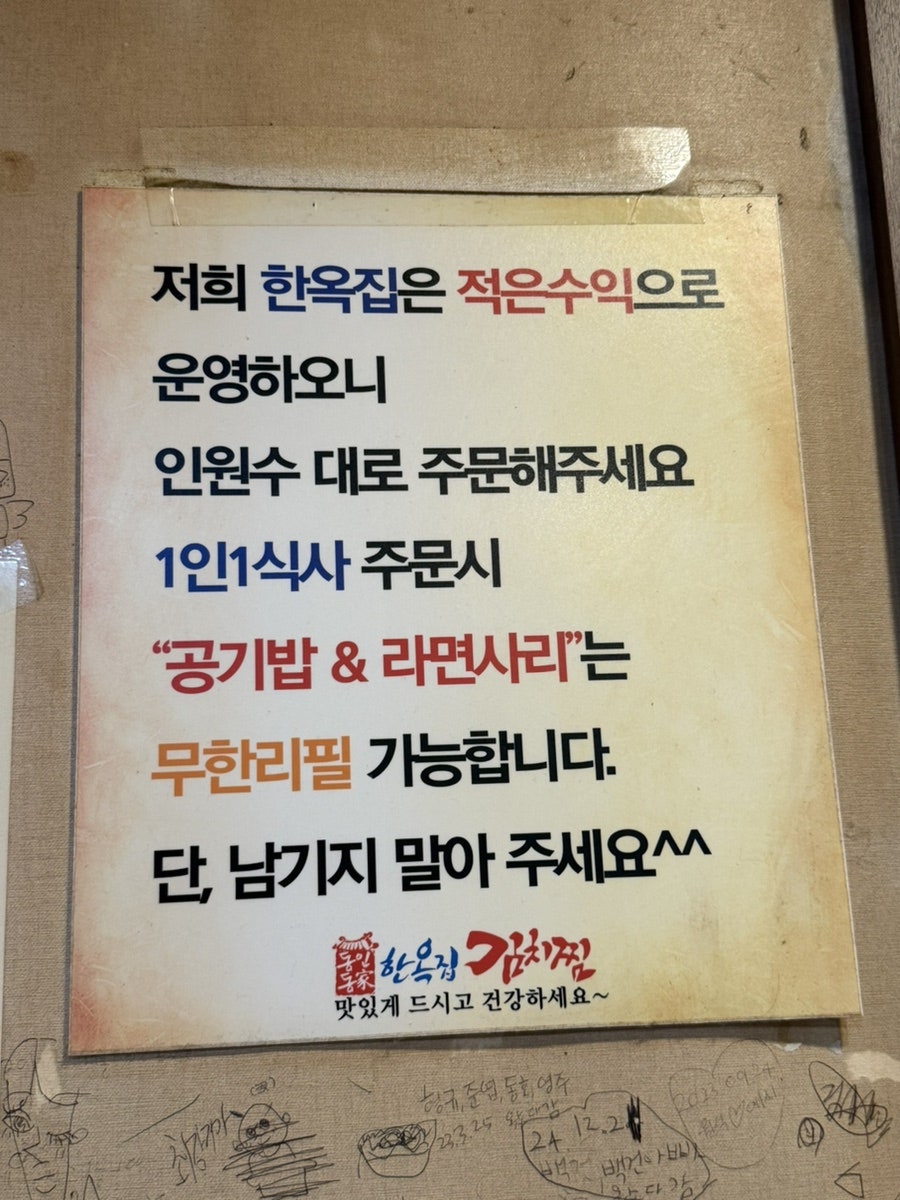 저희 한옥집은 적은수익으로
운영하오니
인원수 대로 주문해주세요
1인1식사 주문시
“공기밥 & 라면사리”는
무한리필 가능합니다.
단, 남기지 말아 주세요^^
한옥집 김치찜
맛있게 드시고 건강하세요~
23.3.25
24 12.2